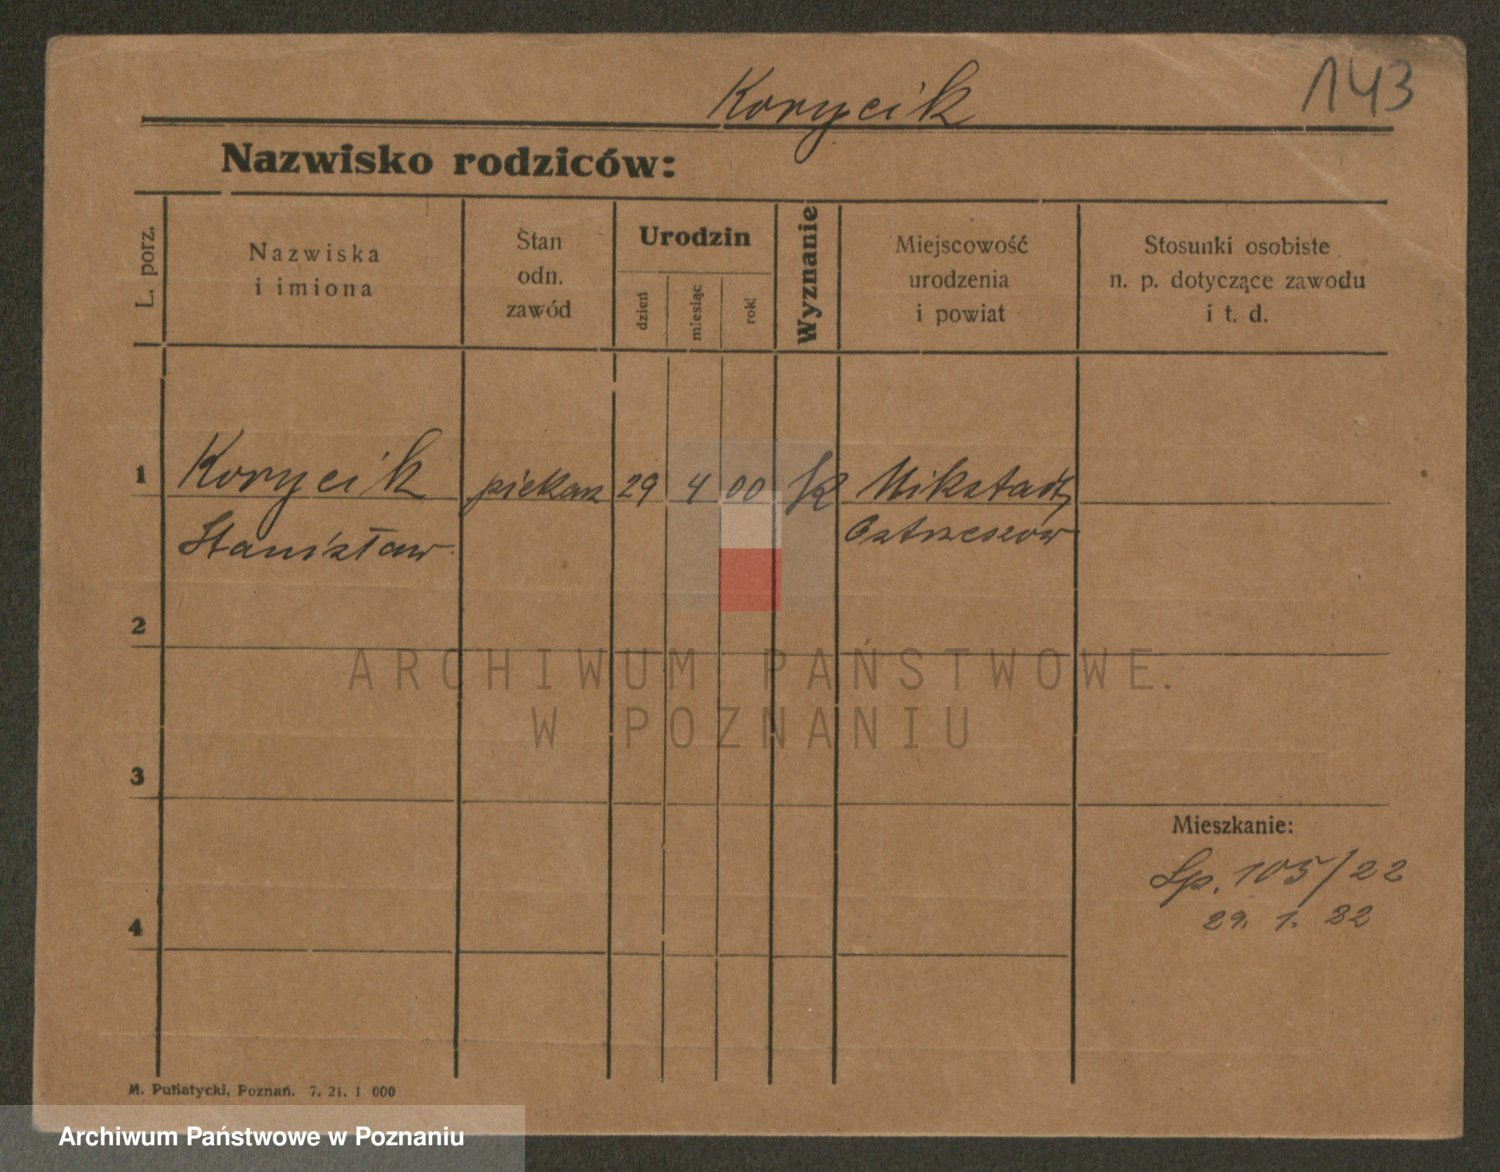 Korycik
143
Nazwisko rodziców:
L. porz.
Nazwiska
i imiona
Stan
odn.
zawód
Urodzin
dzień
miesiąc
rok
Wyznanie
Miejscowość
urodzenia
i powiat
Stosunki osobiste
n. p. dotyczące zawodu
i t. d.
1
Korycik
piekarz
29
4
00
K
Mikstadt,
Stanisław
Ostrzeszów
2
ARCHIWUM PAŃSTWOWE
W POZNANIU
3
Mieszkanie:
Sp. 105/22
29. 1. 22
4
M. Putiatycki, Poznań. 7. 21. 1 000
Archiwum Państwowe w Poznaniu